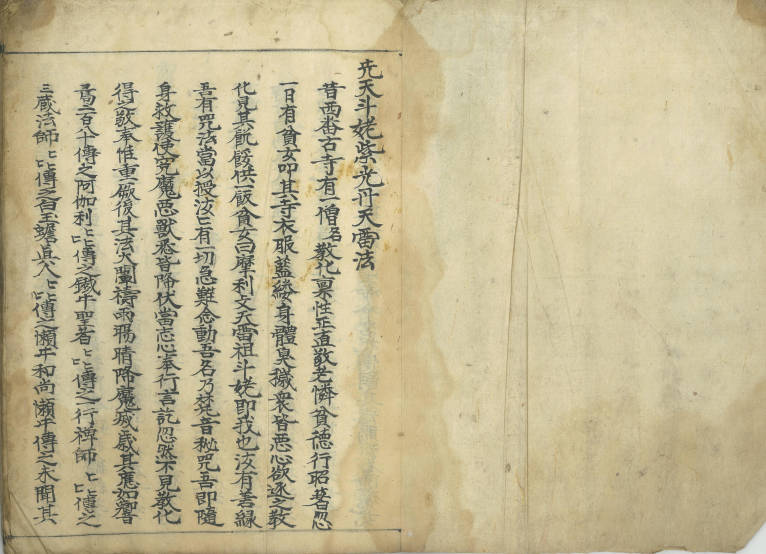 先天斗姥紫光丹天雷法
昔西番古寺有一僧名教化禀性正直敬老憐貧德行昭著忽
一日有貧女叩其寺衣服藍縷身體臭穢衆皆惡心欲逐之教
化見其飢餒供一飯貧女曰摩利支天雷祖斗姥即我也汝有善緣
吾有咒法當以授汝〻有一切急難念動吾名乃梵音秘咒吾即隨
身救護使究魔惡獸悉皆降伏當志心奉行言訖忽然不見教化
得之敬奉惟重厥後其法大闡禱雨暘晴降魔滅 其應如響
 百 傳之阿伽利〻〻傳之鐵牛聖者〻〻傳之行禅師〻〻傳之
三蔵法師〻〻傳之白玉蟾真人〻〻傳之懶牛和尚懶牛傳之未聞其